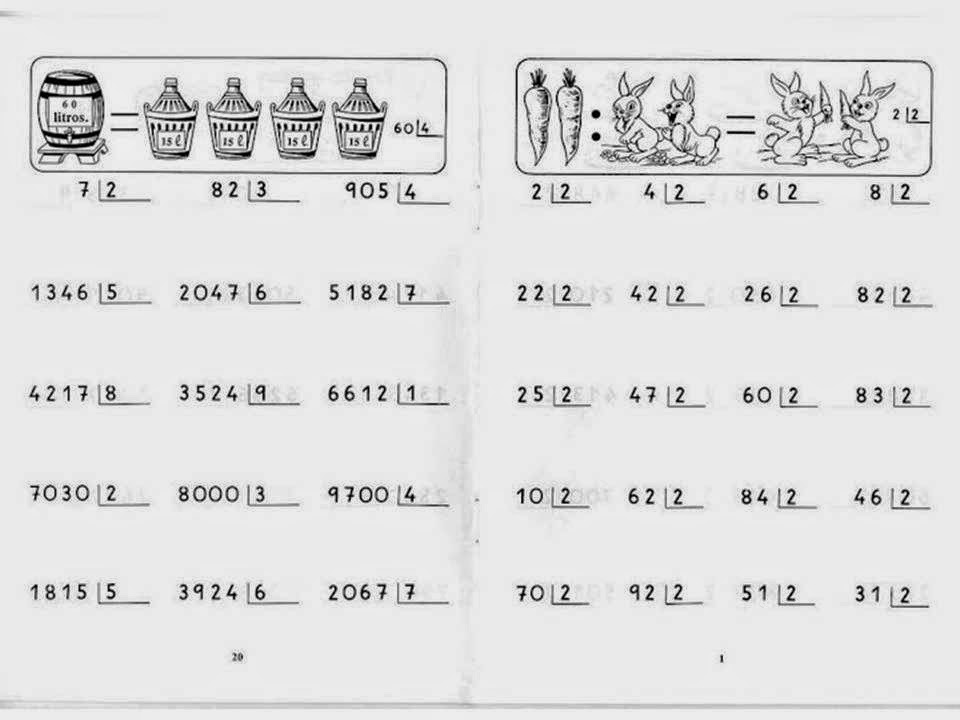 60
litros.
15 ℓ 15 ℓ 15 ℓ 15 ℓ
60 4
7 2 82 3 905 4
1346 5 2047 6 5182 7
4217 8 3524 9 6612 1
7030 2 8000 3 9700 4
1815 5 3924 6 2067 7
20
2 2
2 2 4 2 6 2 8 2
22 2 42 2 26 2 82 2
25 2 47 2 60 2 83 2
10 2 62 2 84 2 46 2
70 2 92 2 51 2 31 2
1